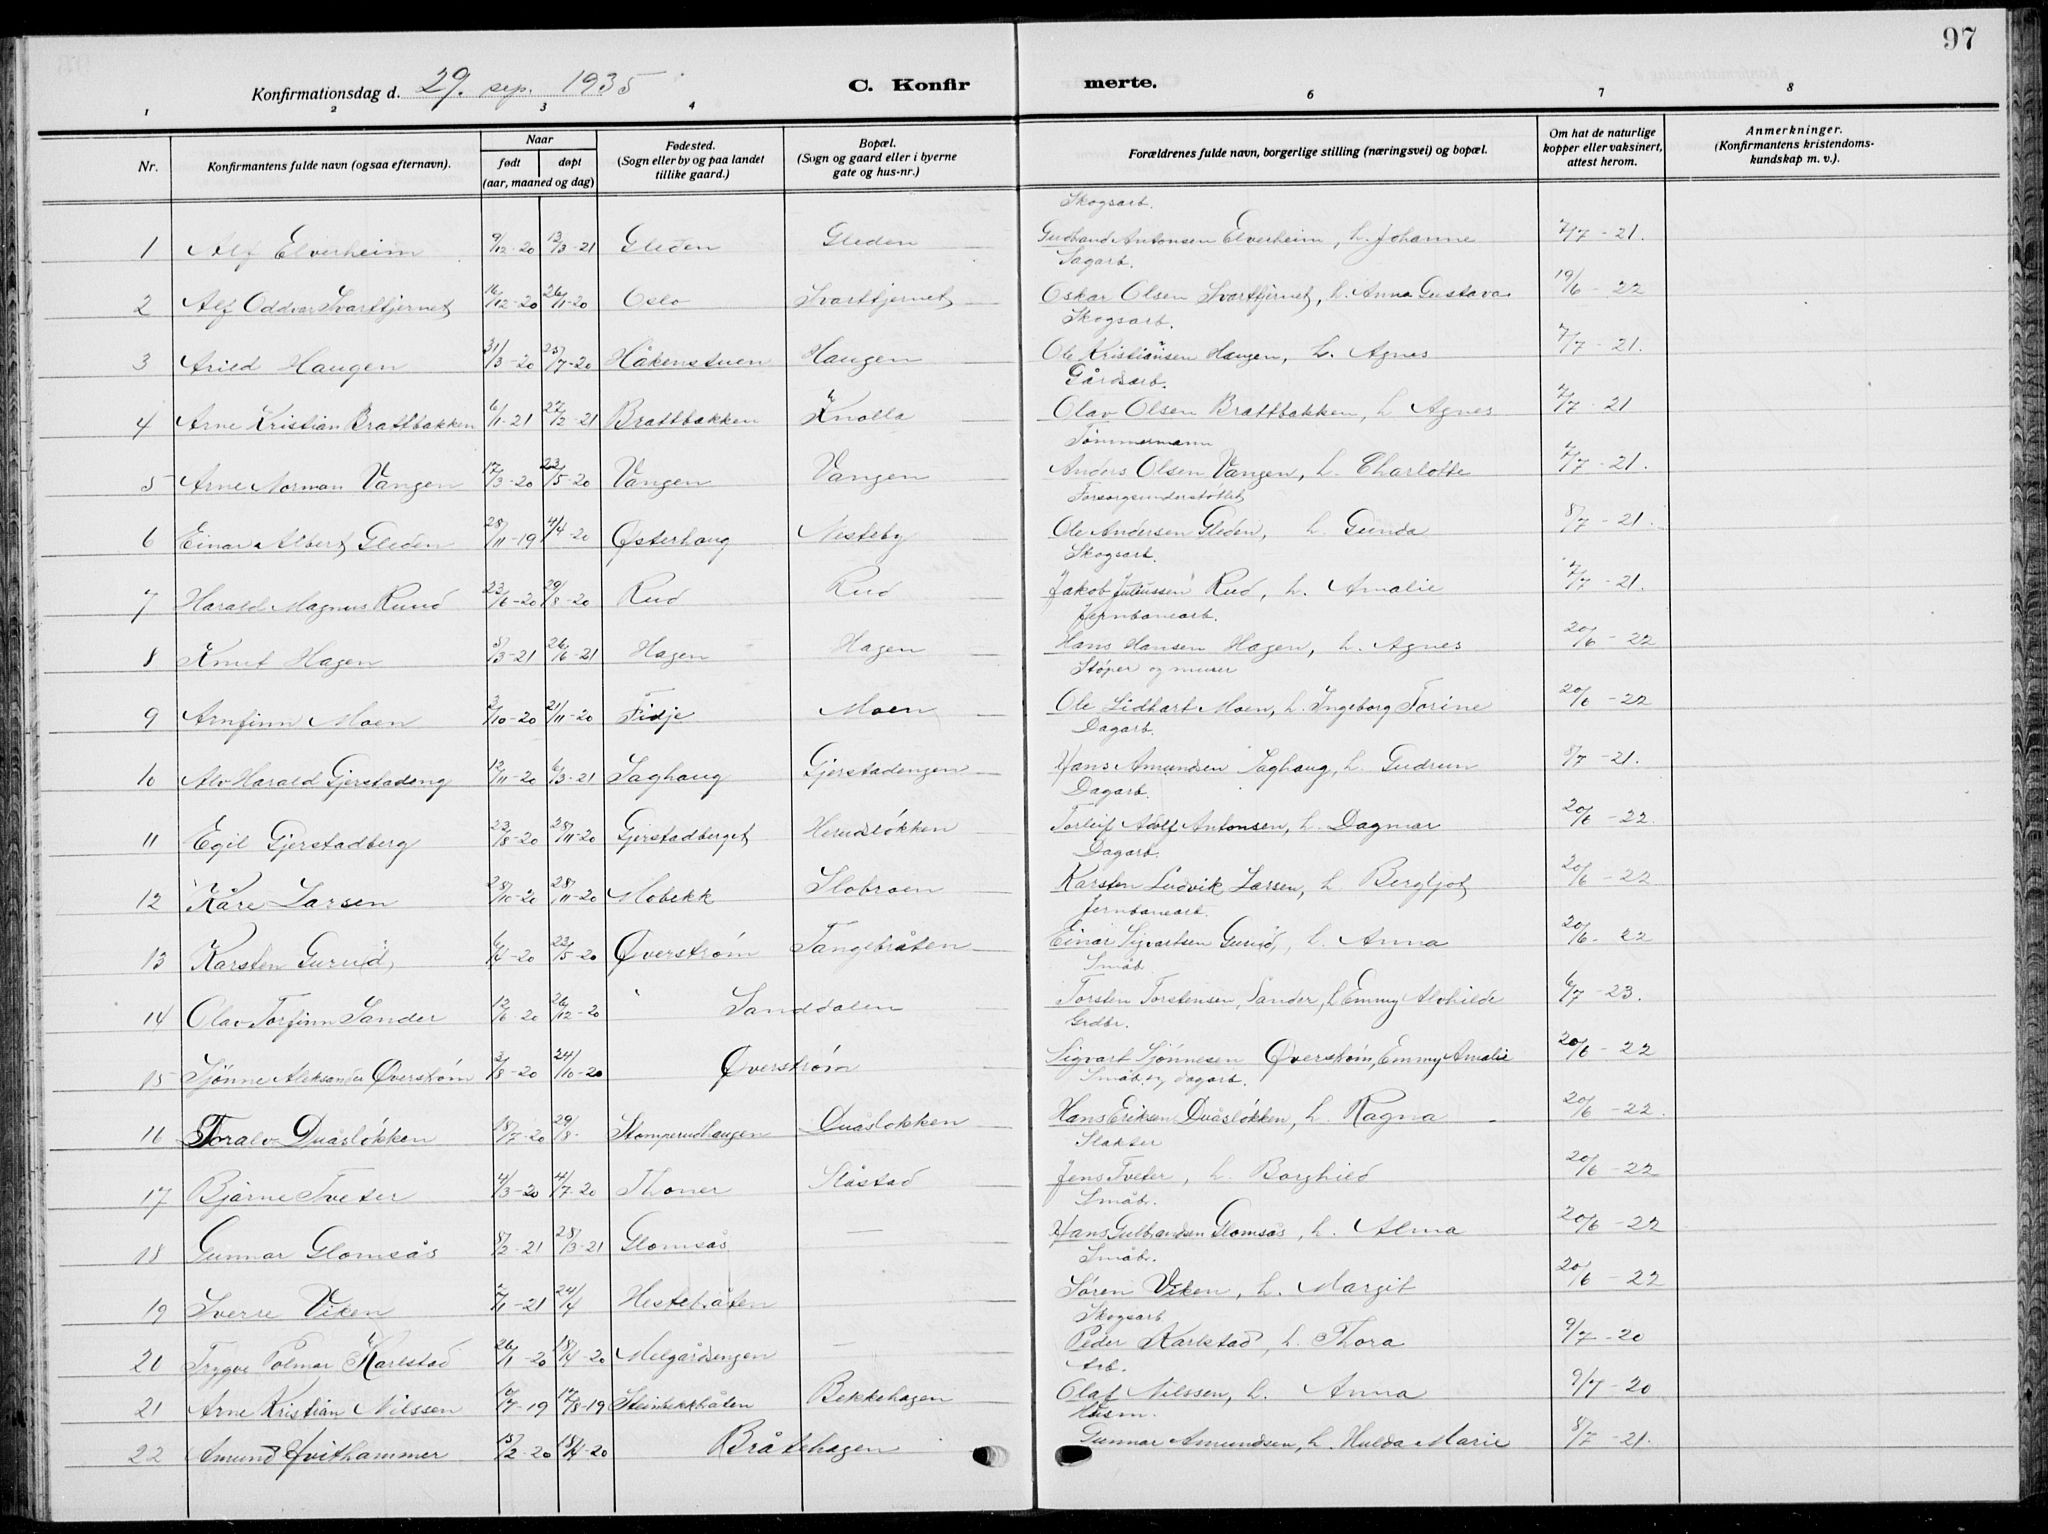 97
Konfirmationsdag d. 29. sep. 1935 C. Konfirmerte.
1 2 3 4 6 7 8
Nr. Konfirmantens fulde navn (ogsaa efternavn). Naar født døpt (aar, maaned og dag) Fødested. (Sogn eller by og paa landet tillike gaard.) Bopæl. (Sogn og gaard eller i byerne gate og hus-nr.) Forældrenes fulde navn, borgerlige stilling (næringsvei) og bopæl. Om hat de naturlige kopper eller vaksinert, attest herom. Anmerkninger. (Konfirmantens kristendoms-kundskap m. v.).
Skogsarb.
1 Alf Elverheim 9/12-20 13/3-21 Gleden Gleden Gudbrand Antonsen Elverheim, h. Johanne 7/7-21.
Sagarb.
2 Alf Oddvar Svarttjernet 16/12-20 26/1-20 Oslo Svarttjernet Oskar Olsen Svarttjernet, h. Anna Gustava 19/6-22
Skogsarb.
3 Arild Haugen 31/3-20 25/7-20 Håkenstuen Haugen Ole Kristiansen Haugen, h. Agnes 7/7-21.
Gårdsarb.
4 Arne Kristian Brattbakken 6/1-21 27/2-21 Brattbakken Knolla Olav Olsen Brattbakken, h. Agnes 7/7-21
Tømmermann
5 Arne Norman Vangen 17/3-20 23/5-20 Vangen Vangen Anders Olsen Vangen, h. Charlotte 7/7-21.
Forsorgsunderstøttet
6 Einar Albert Gleden 28/11-19 4/4-20 Østerhaug Nesteby Ole Andersen Gleden, h. Gunda 8/7-21.
Skogsarb.
7 Harald Magnus Ruud 23/6-20 29/8-20 Rud Rud Jakob Juliussen Rud, h. Amalie 7/7-21.
Jernbanearb.
8 Knut Hagen 8/3-21 26/6-21 Hagen Hagen Hans Hansen Hagen, h. Agnes 20/6-22
Støper og murer
9 Arnfinn Moen 2/10-20 21/11-20 Fidje Moen Ole Lidhart Moen, h. Ingeborg Torine 20/6-22
Dagarb.
10 Alv Harald Gjerstadeng 12/11-20 6/3-21 Saghaug Gjerstadengen Hans Amundsen Saghaug, h. Gudrun 8/7-21.
Dagarb.
11 Egil Gjerstadberg 23/8-20 28/11-20 Gjerstadberget Herudsløkken Torleif Adolf Antonsen, h. Dagmar 20/6-22.
Dagarb.
12 Kåre Larsen 28/10-20 28/11-20 Mobekk Slobroen Karsten Ludvik Larsen, h. Bergljot 20/6-22
Jernbanearb.
13 Karsten Gurud 6/4-20 22/5-20 Øverstrøm Tangebråten Einar Sigvartsen Gurud, h. Anna 20/6-22
Småb.
14 Olav Torfinn Sander 12/6-20 26/12-20 Sanddalen Torsten Torstensen Sander, h. Emmy Alvhilde 6/7-23.
Grdbr.
15 Sjønne Aleksander Øverstrøm 3/8-20 24/10-20 Øverstrøm Sigvart Sjønnesen Øverstrøm, Emmy Amalie 20/6-22
Småb. og dagarb.
16 Toralv Duåsløkken 18/7-20 29/8- Stomperudhaugen Duåsløkken Hans Eriksen Duåsløkken, h. Ragna 20/6-22.
Slakter
17 Bjarne Tveter 4/3-20 4/7-20 Thoner Slåstad Jens Tveter, h. Borghild 20/6-22
Småb.
18 Gunnar Glomsås 8/2-21 28/3-21 Glomsås — Hans Gulbrandsen Glomsås, h. Alma 20/6-22
Småb.
19 Sverre Viken 2/1-21 24/4 Hestebråten Søren Viken, h. Margit 20/6-22
Skogsarb
20 Trygve Polmar Karlstad 26/1-20 18/4-20 Melgårdsengen — Peder Karlstad, h. Thora 9/7-20
Arb.
21 Arne Kristian Nilssen 10/7-19 17/8-19 Steinbekkbråten Bekkehagen Olaf Nilssen, h. Anna 9/7-20
Husm.
22 Amund Qvithammer 15/2-20 18/4-20 Bråtehagen Gunnar Amundsen, h. Hulda Marie 8/7-21.